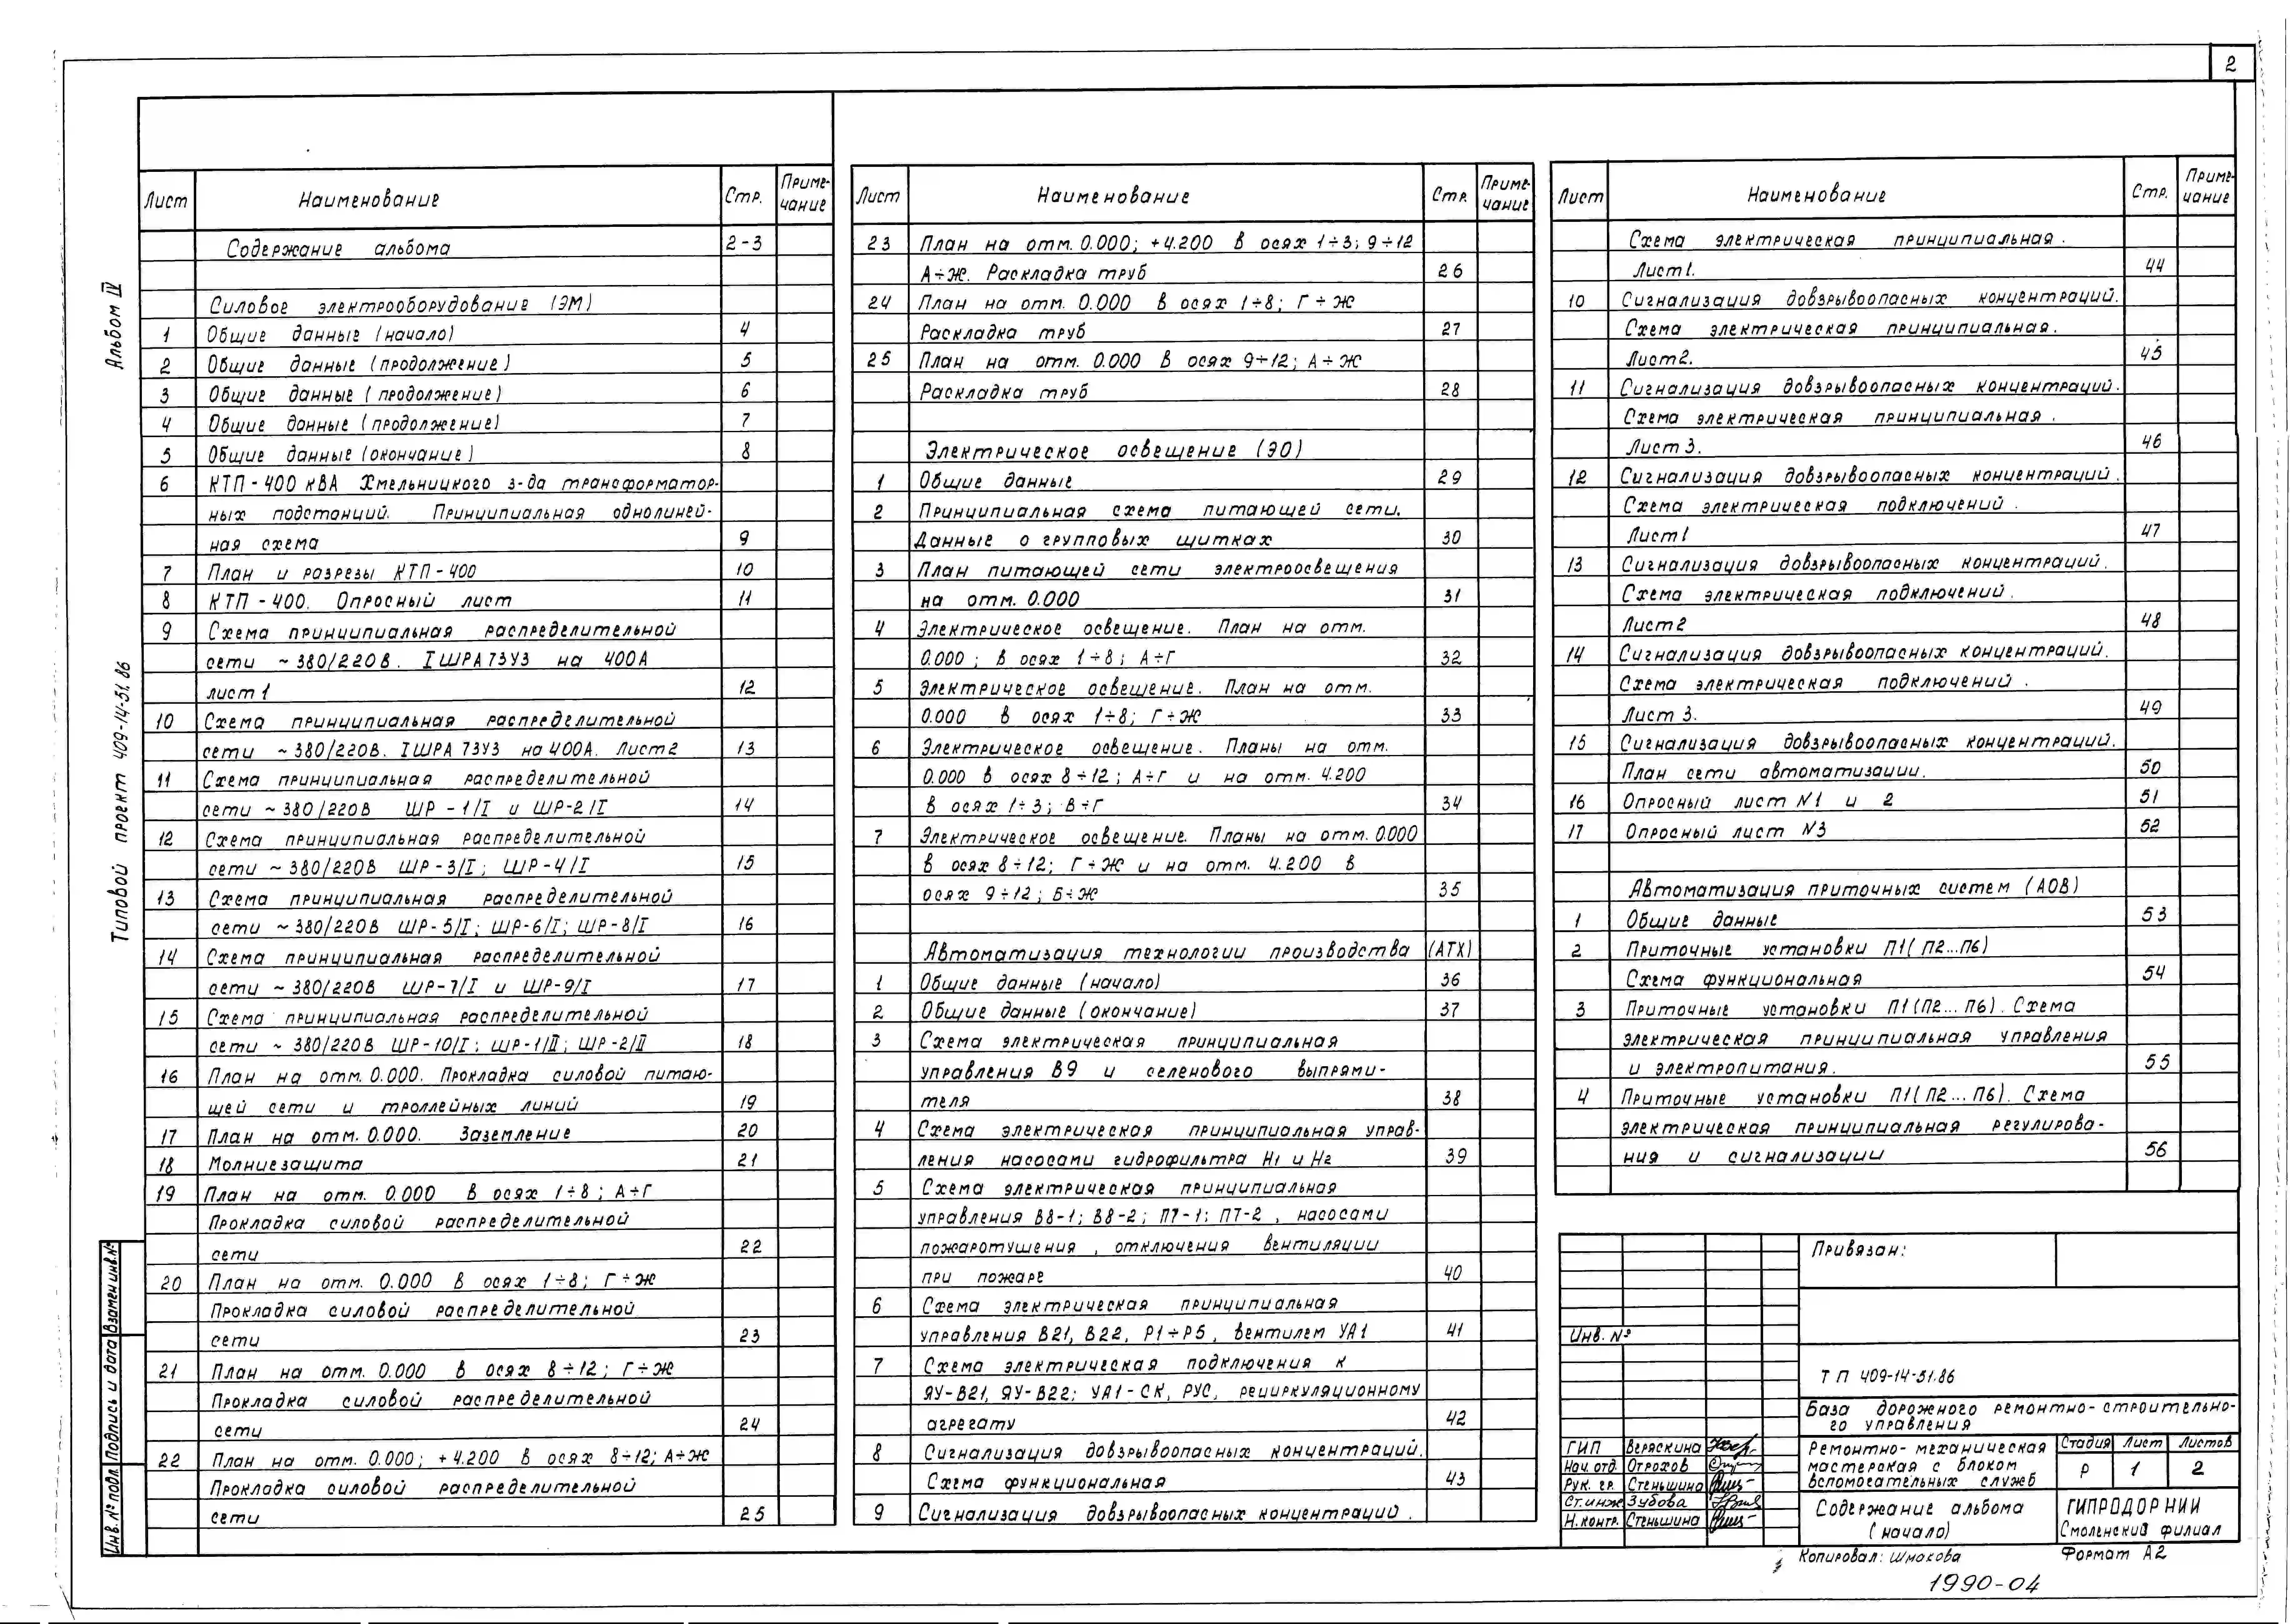 2
Альбом IV
Типовой проект 409-14-51.86
Взамен инв.№
Подпись и дата
Инв.№ подл.
Лист Наименование Стр. Приме-
чание
Содержание альбома 2-3
Силовое электрооборудование (ЭМ)
1 Общие данные (начало) 4
2 Общие данные (продолжение) 5
3 Общие данные (продолжение) 6
4 Общие данные (продолжение) 7
5 Общие данные (окончание) 8
6 КТП-400 кВА Хмельницкого з-да трансформатор-
ных подстанций. Принципиальная однолиней-
ная схема 9
7 План и разрезы КТП-400 10
8 КТП-400. Опросный лист 11
9 Схема принципиальная распределительной
сети ~380/220В. IШРА73У3 на 400А
лист 1 12
10 Схема принципиальная распределительной
сети ~380/220В. IШРА 73У3 на 400А. Лист 2 13
11 Схема принципиальная распределительной
сети ~380/220В ШР-1/I и ШР-2/I 14
12 Схема принципиальная распределительной
сети ~380/220В ШР-3/I; ШР-4/I 15
13 Схема принципиальная распределительной
сети ~380/220В ШР-5/I; ШР-6/I; ШР-8/I 16
14 Схема принципиальная распределительной
сети ~380/220В ШР-7/I и ШР-9/I 17
15 Схема принципиальная распределительной
сети ~380/220В ШР-10/I; ШР-1/II; ШР-2/II 18
16 План на отм. 0.000. Прокладка силовой питаю-
щей сети и троллейных линий 19
17 План на отм. 0.000. Заземление 20
18 Молниезащита 21
19 План на отм. 0.000 в осях 1÷8; А÷Г
Прокладка силовой распределительной
сети 22
20 План на отм. 0.000 в осях 1÷8; Г÷Ж
Прокладка силовой распределительной
сети 23
21 План на отм. 0.000 в осях 8÷12; Г÷Ж
Прокладка силовой распределительной
сети 24
22 План на отм. 0.000; +4.200 в осях 8÷12; А÷Ж
Прокладка силовой распределительной
сети 25
Лист Наименование Стр. Приме-
чание
23 План на отм. 0.000; +4.200 в осях 1÷3; 9÷12
А÷Ж. Раскладка труб 26
24 План на отм. 0.000 в осях 1÷8; Г÷Ж
Раскладка труб 27
25 План на отм. 0.000 в осях 9÷12; А÷Ж
Раскладка труб 28
Электрическое освещение (ЭО)
1 Общие данные 29
2 Принципиальная схема питающей сети.
Данные о групповых щитках 30
3 План питающей сети электроосвещения
на отм. 0.000 31
4 Электрическое освещение. План на отм.
0.000; в осях 1÷8; А÷Г 32
5 Электрическое освещение. План на отм.
0.000 в осях 1÷8; Г÷Ж 33
6 Электрическое освещение. Планы на отм.
0.000 в осях 8÷12; А÷Г и на отм. 4.200
в осях 1÷3; В÷Г 34
7 Электрическое освещение. Планы на отм. 0.000
в осях 8÷12; Г÷Ж и на отм. 4.200 в
осях 9÷12; Б÷Ж 35
Автоматизация технологии производства (АТХ)
1 Общие данные (начало) 36
2 Общие данные (окончание) 37
3 Схема электрическая принципиальная
управления В9 и селенового выпрями-
теля 38
4 Схема электрическая принципиальная управ-
ления насосами гидрофильтра Н1 и Н2 39
5 Схема электрическая принципиальная
управления В8-1; В8-2; П7-1; П7-2, насосами
пожаротушения, отключения вентиляции
при пожаре 40
6 Схема электрическая принципиальная
управления В21, В22, Р1÷Р5, вентилем УА1 41
7 Схема электрическая подключения к
ЯУ-В21, ЯУ-В22; УА1-СК, РУС, рециркуляционному
агрегату 42
8 Сигнализация довзрывоопасных концентраций.
Схема функциональная 43
9 Сигнализация довзрывоопасных концентраций.
Лист Наименование Стр. Приме-
чание
Схема электрическая принципиальная.
Лист 1. 44
10 Сигнализация довзрывоопасных концентраций.
Схема электрическая принципиальная.
Лист 2. 45
11 Сигнализация довзрывоопасных концентраций.
Схема электрическая принципиальная.
Лист 3. 46
12 Сигнализация довзрывоопасных концентраций.
Схема электрическая подключений.
Лист 1 47
13 Сигнализация довзрывоопасных концентраций.
Схема электрическая подключений.
Лист 2 48
14 Сигнализация довзрывоопасных концентраций.
Схема электрическая подключений.
Лист 3. 49
15 Сигнализация довзрывоопасных концентраций.
План сети автоматизации. 50
16 Опросный лист №1 и 2 51
17 Опросный лист №3 52
Автоматизация приточных систем (АОВ)
1 Общие данные 53
2 Приточные установки П1(П2...П6)
Схема функциональная 54
3 Приточные установки П1(П2...П6). Схема
электрическая принципиальная управления
и электропитания. 55
4 Приточные установки П1(П2...П6). Схема
электрическая принципиальная регулирова-
ния и сигнализации 56
Привязан:
Инв. №
ТП 409-14-51.86
База дорожного ремонтно-строительно-
го управления
ГИП Веряскина
Нач. отд. Отрохов
Рук. гр. Стеньшина
Ст. инж Зубова
Н. контр. Стеньшина
Ремонтно-механическая
мастерская с блоком
вспомогательных служб
Стадия Лист Листов
Р 1 2
Содержание альбома
(начало)
ГИПРОДОРНИИ
Смоленский филиал
Копировал: Шмокова Формат А2
1990-04